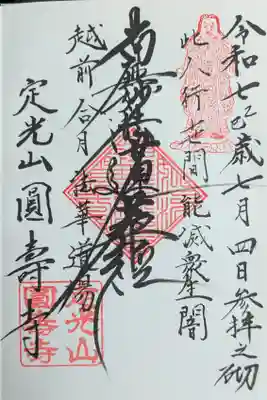 令和七乙巳歳七月四日参拝之砌
此人行世間能滅衆生闇
南無妙法蓮華経
越前合月法華道場
定光山圓壽寺
光山
圓壽寺